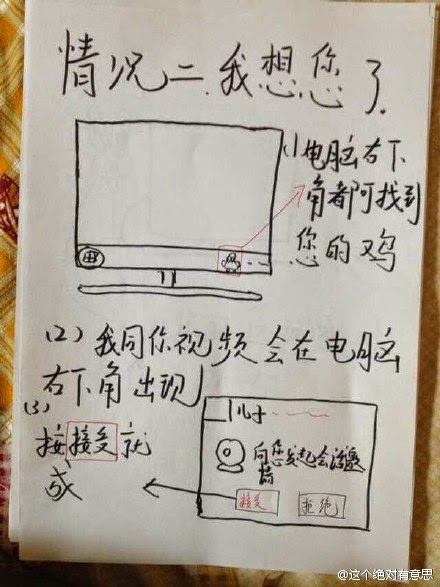 情况二.我想您了.
(1)电脑右下
角都可找到
您的鸡
(2)我同你视频会在电脑
右下角出现
(3)
按接受就
成
儿子
向您发起会话邀
请
接受
拒绝
@这个绝对有意思